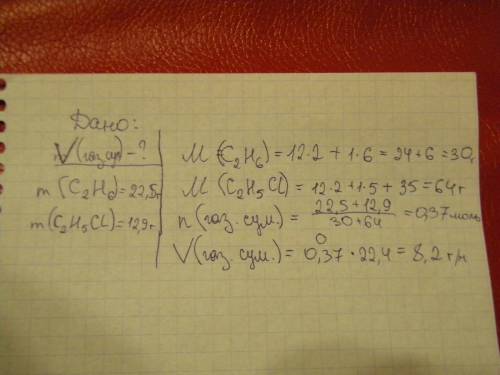 Дано:
V(газ.сум) - ?
m(C₂H₆) = 22,5г
m(C₂H₅Cl) = 12,9г
M(C₂H₆) = 12·2 + 1·6 = 24+6 = 30г
M(C₂H₅Cl) = 12·2+1·5 + 35 = 64г
n(газ. сум.) = 22,5+12,9 / 30+64 = 0,37моль
V(газ. сум.) = 0,37 · 22,4 = 8,2 г/м